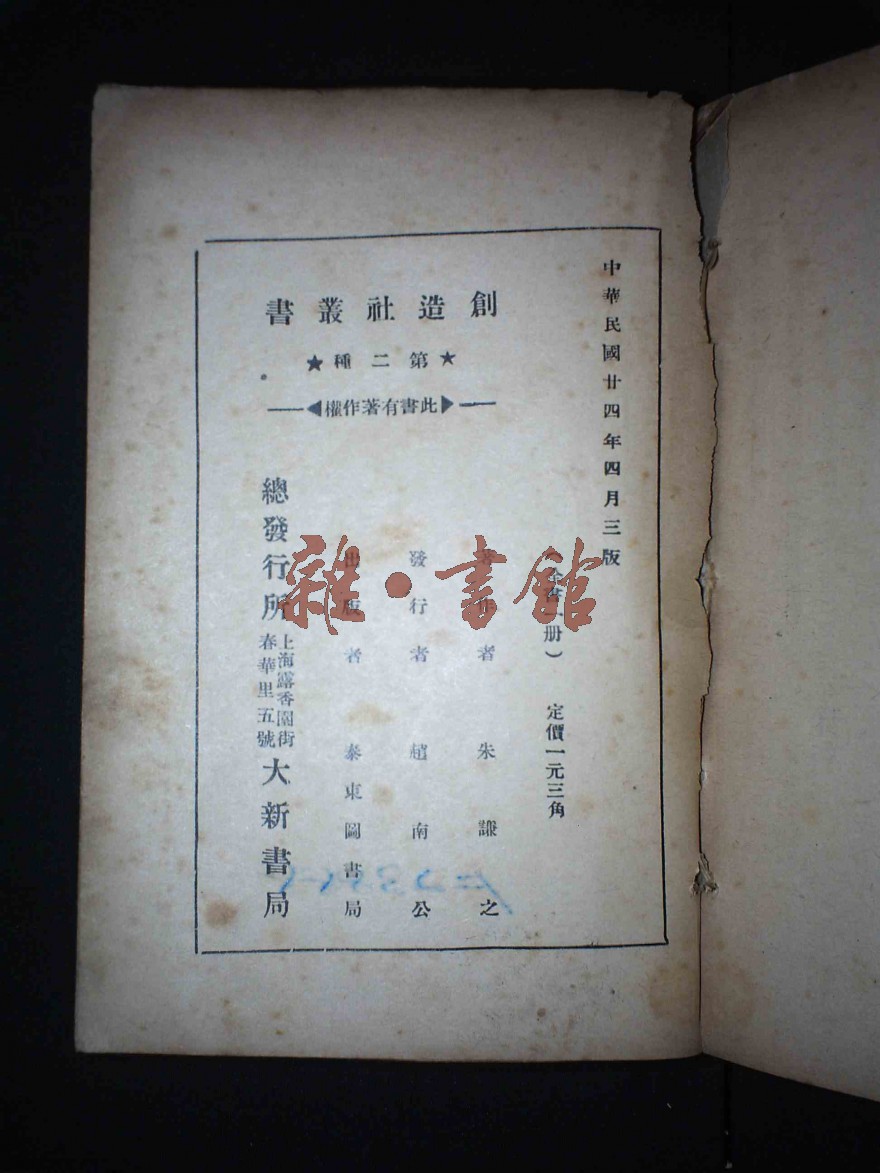 中華民國廿四年四月三版
創造社叢書
★第二種★
此書有著作權
（全書一册）　定價一元三角
著作者　朱謙之
發行者　趙南公
出版者　泰東圖書局
總發行所　上海露香園街春華里五號　大新書局
雜·書館